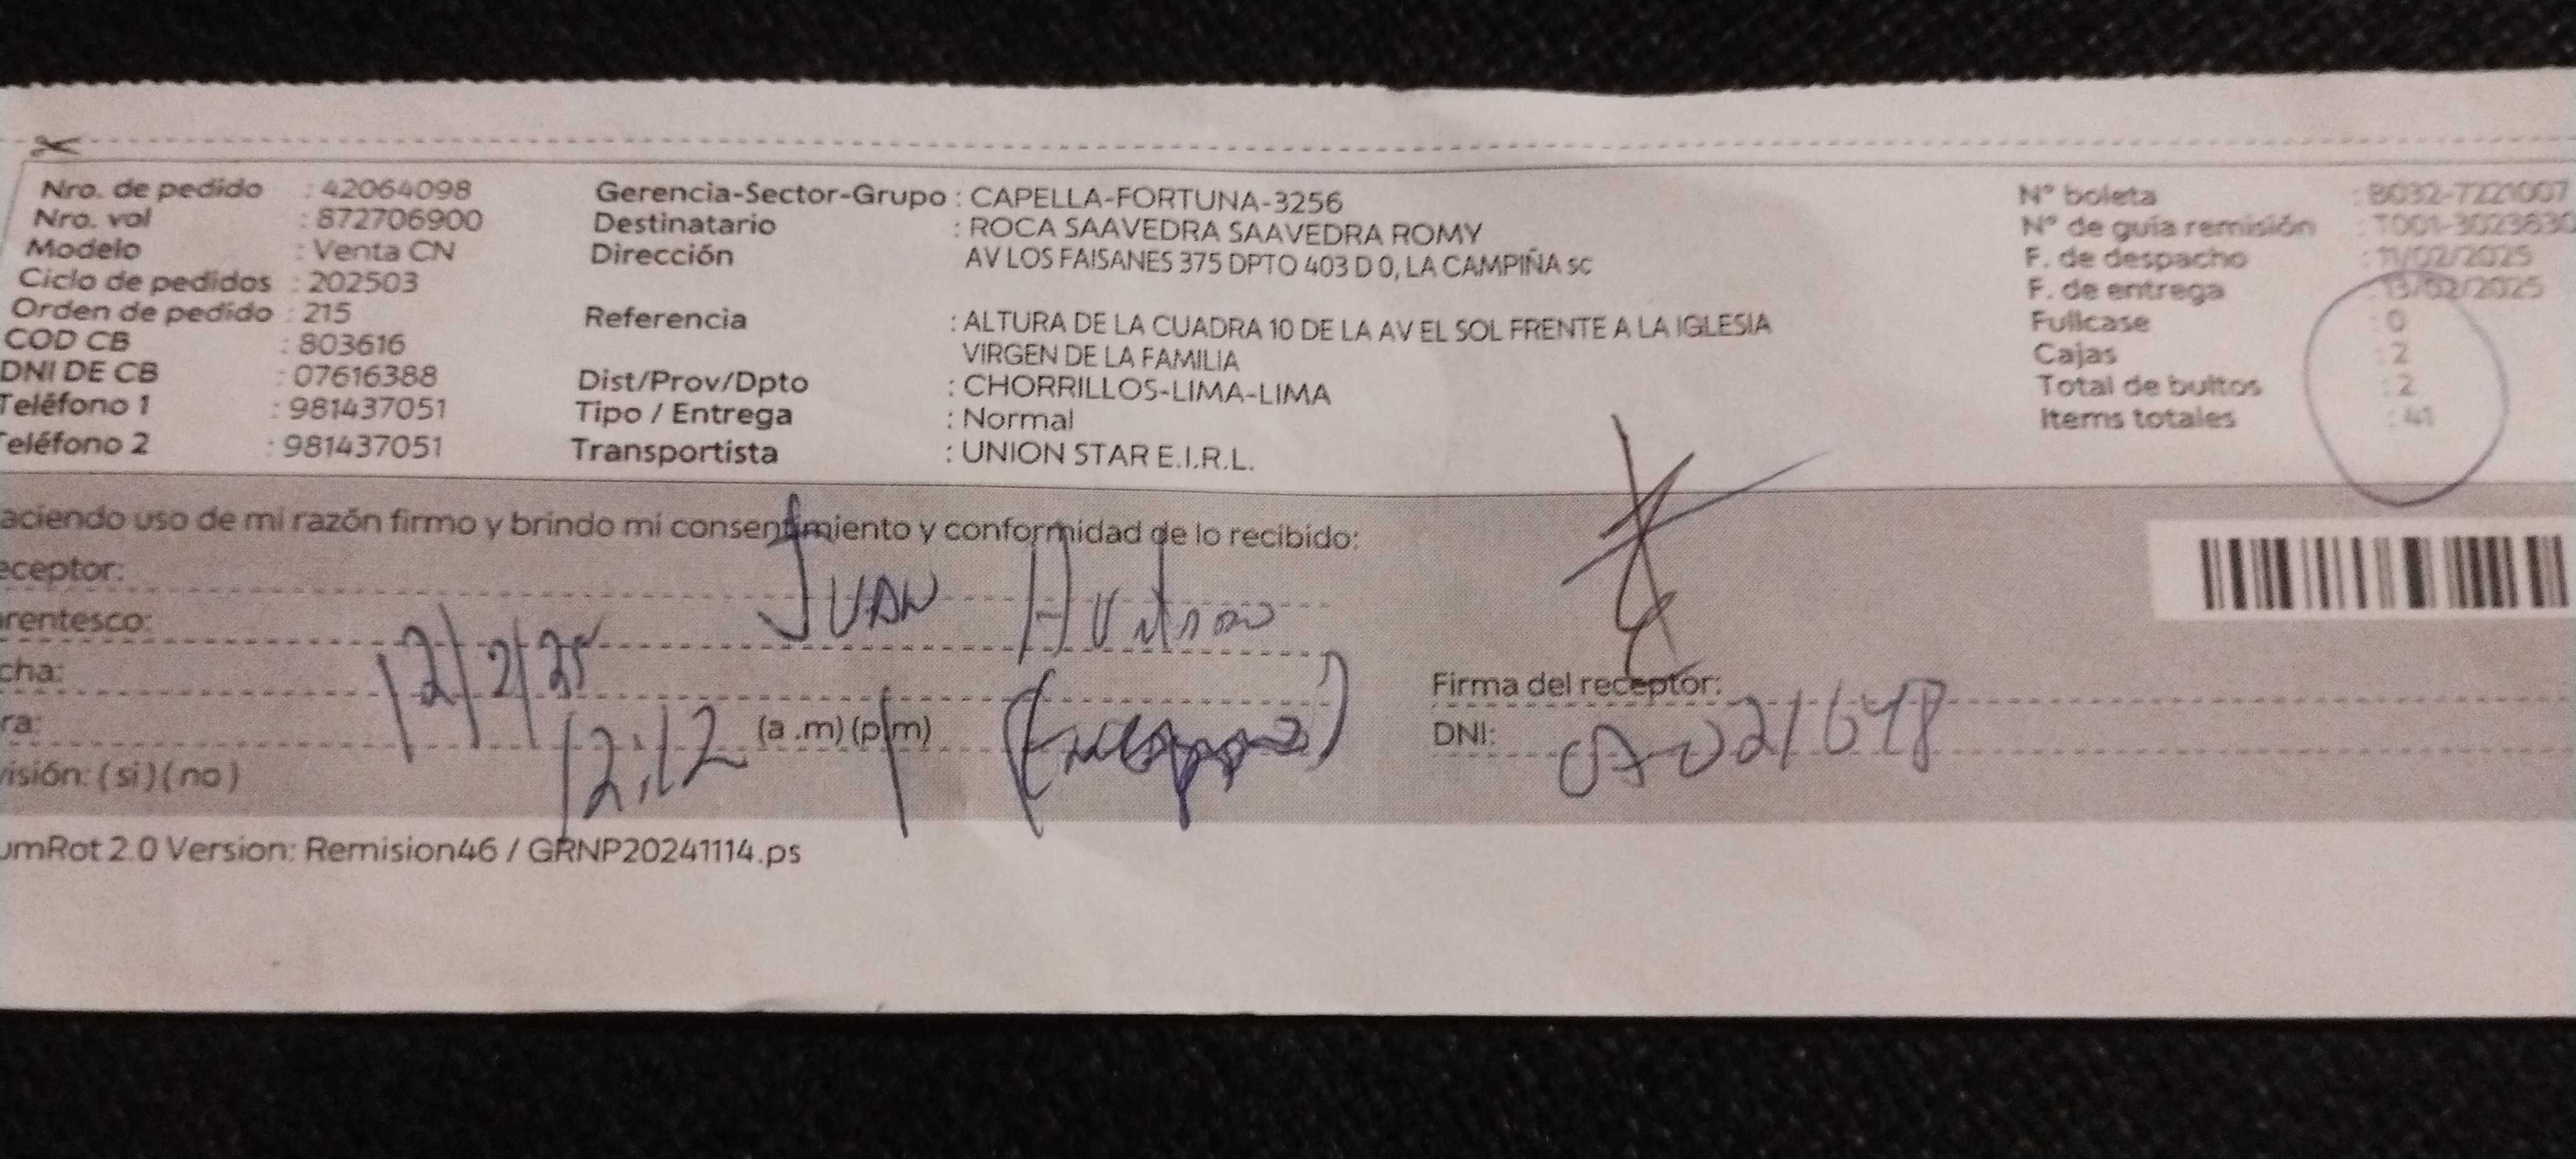 Nro. de pedido : 42064098
Nro. vol : 872706900
Modelo : Venta CN
Ciclo de pedidos : 202503
Orden de pedido : 215
COD CB : 803616
DNI DE CB : 07616388
Teléfono 1 : 981437051
eléfono 2 : 981437051
Gerencia-Sector-Grupo : CAPELLA-FORTUNA-3256
Destinatario : ROCA SAAVEDRA SAAVEDRA ROMY
Dirección AV LOS FAISANES 375 DPTO 403 D 0, LA CAMPIÑA sc
Referencia : ALTURA DE LA CUADRA 10 DE LA AV EL SOL FRENTE A LA IGLESIA
VIRGEN DE LA FAMILIA
Dist/Prov/Dpto : CHORRILLOS-LIMA-LIMA
Tipo / Entrega : Normal
Transportista : UNION STAR E.I.R.L.
N° boleta : B032-7221007
N° de guía remisión : T001-3023630
F. de despacho : 11/02/2025
F. de entrega : 13/02/2025
Fullcase : 0
Cajas : 2
Total de bultos : 2
Items totales : 41
aciendo uso de mi razón firmo y brindo mi consentimiento y conformidad de lo recibido:
eceptor: JUAN
rentesco:
cha: 12/2/25
ra: 12:12 (a .m) (p m)
isión: ( si ) ( no )
Firma del receptor:
DNI: 07021648
umRot 2.0 Version: Remision46 / GRNP20241114.ps